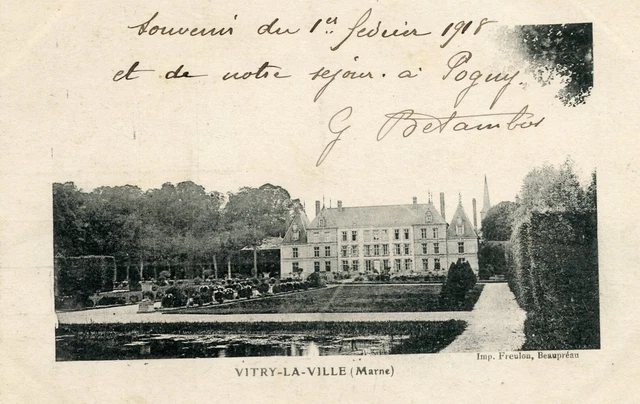 Souvenir du 1er février 1918
et de notre séjour à Pogny.
G Betambos
Imp. Freulon, Beaupréau
VITRY-LA-VILLE (Marne)